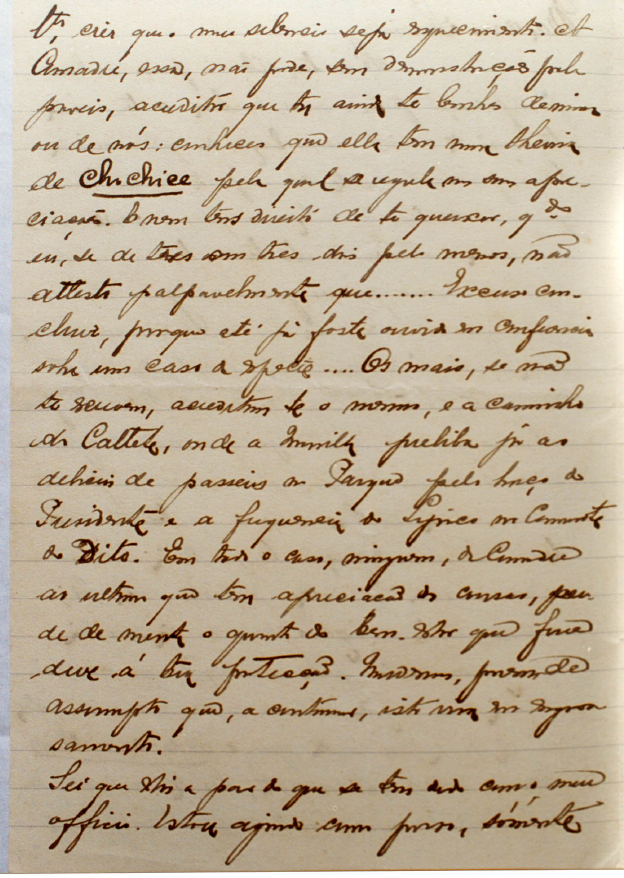 crêr que o meu silencio seja esquecimento. A
Comadre, essa, não pode, sem demonstrações pela
ainda te lembres de mim
ou de nós: conheces que ella tem uma theoria
de Chichice pela qual se regula nas suas apre-
ciações. E nem tens direito de te queixar, q.do
eu, se de tres em tres dias pelo menos, não
attesto palpavelmente que....... Excuso con-
cluir, porque até já foste ouvido em confidencia
sobre um caso da especie.... Os mais, se não
te escrevem, acreditam-te o mesmo, e a caminho
do Cattete, onde a preliba já as
delicias de passeios no Parque pelo braço do
Presidente e a frequencia do Lyrico no Camarote
do Dito. Em todo o caso, ninguem, da Comadre
ao ultimo que tem apreciação das cousas, per-
de de mente o quanto de bem-estar que
deve á tua protecção. Mudemos, porém de
assumpto que, a continuar, isto vae em
samento.
Sei que estás a par do que se tem dado com o meu
officio. Estou agindo com , sómente